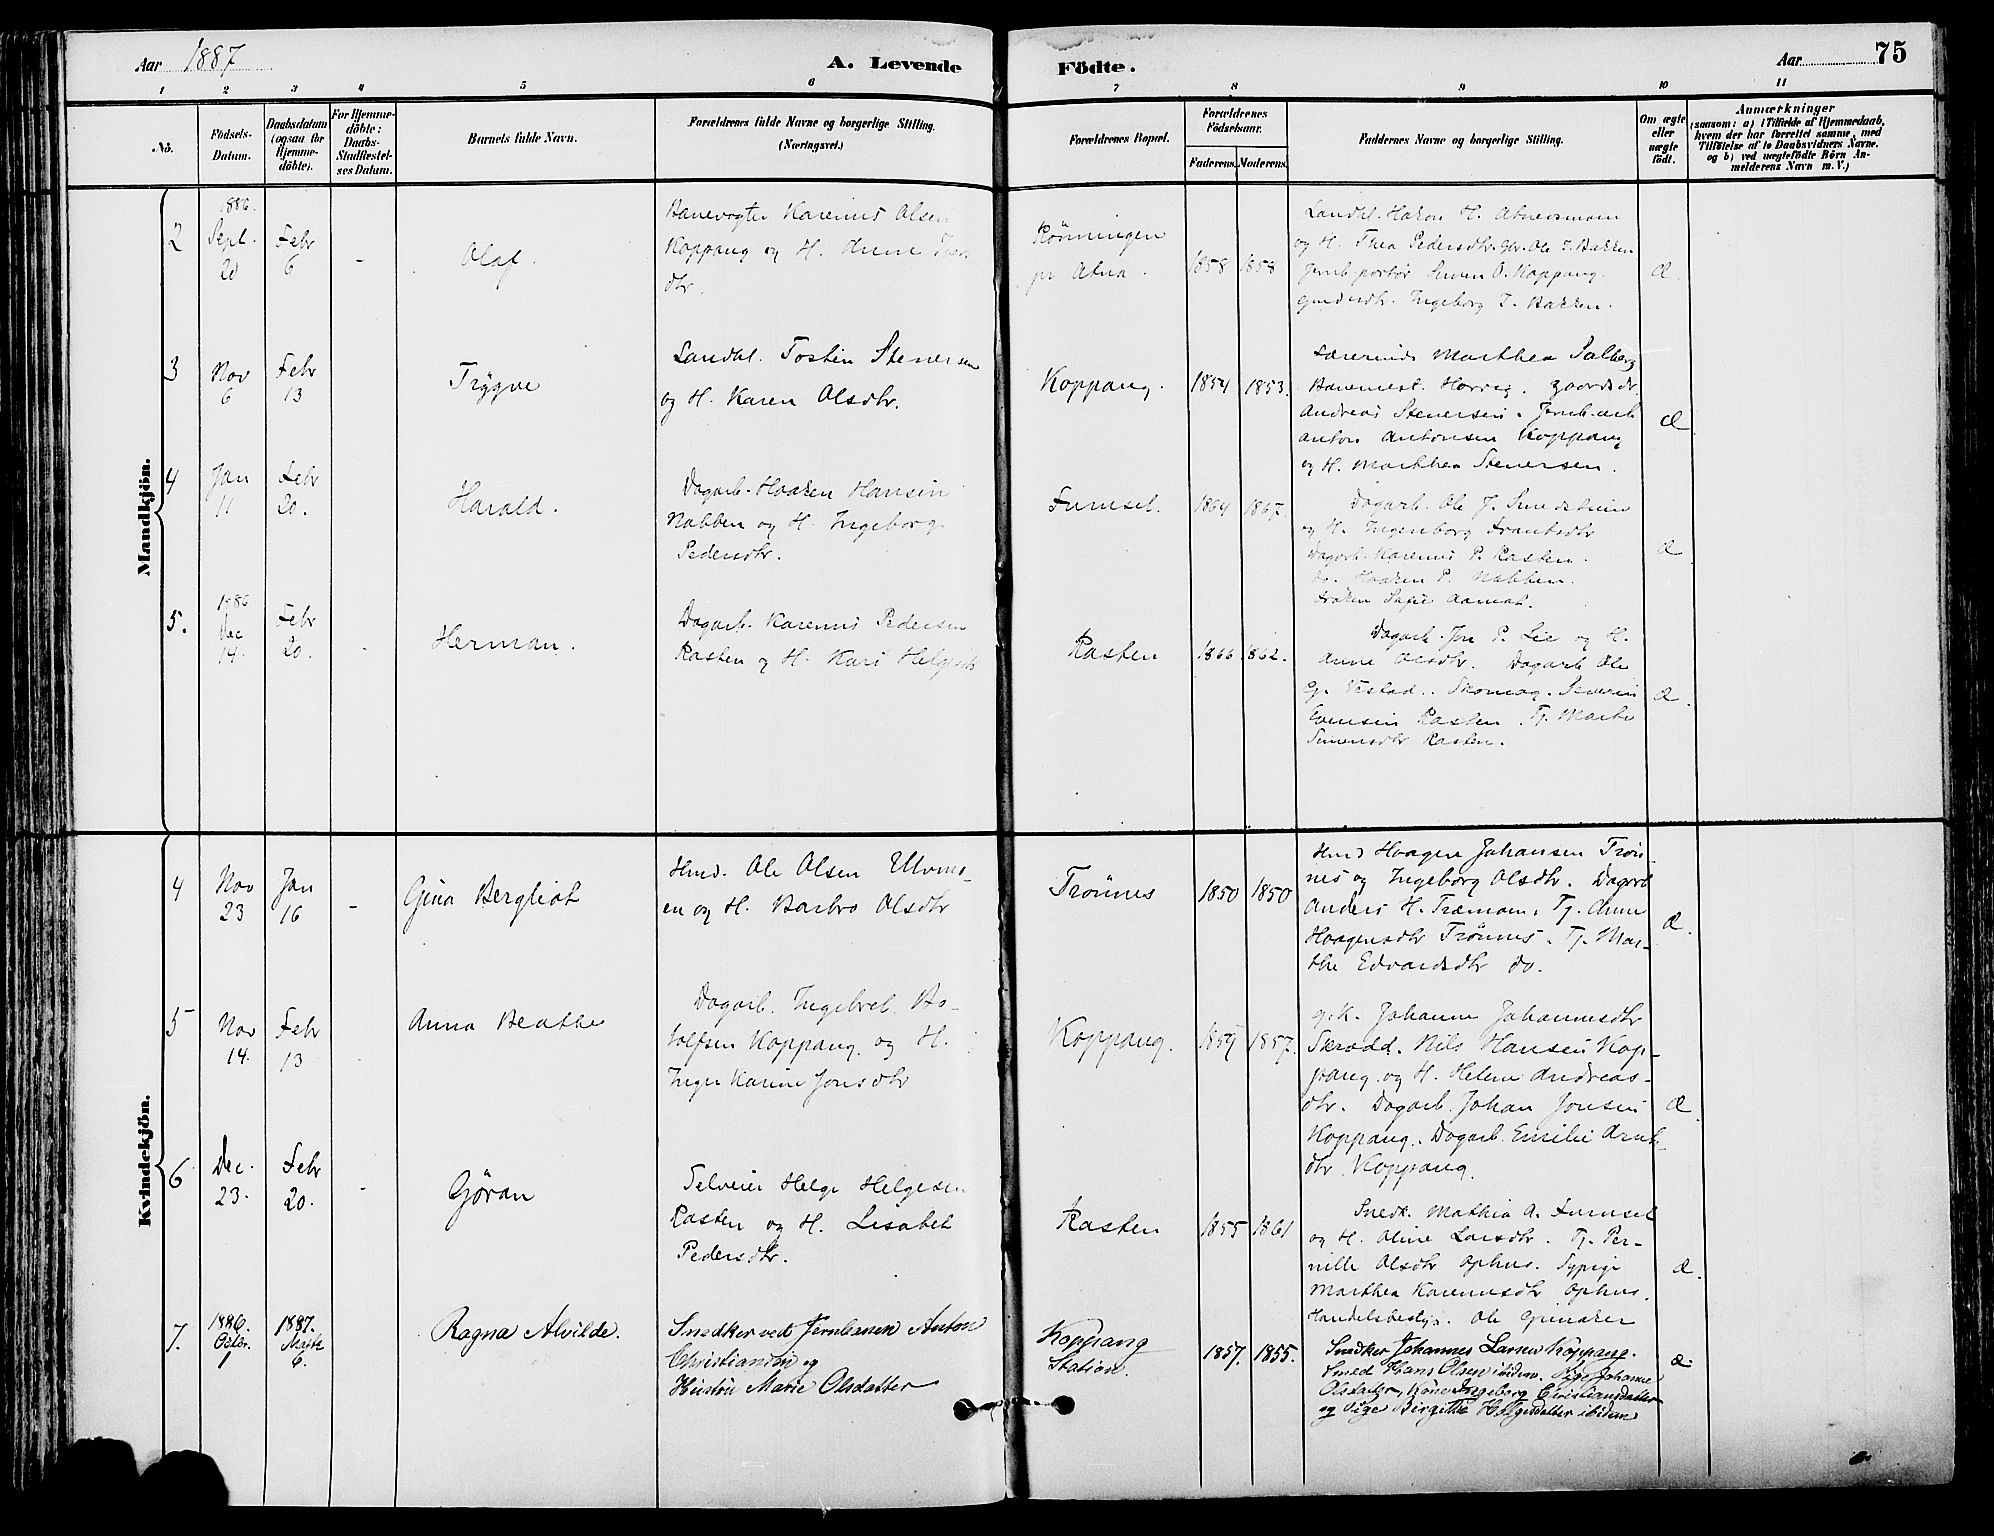 Aar 1887
A. Levende
Födte.
Aar
75
1 2 3 4 5 6 7 8 9 10 11
No.
Födsels-
Datum.
Daabsdatum
(ogsaa for
Hjemme-
döbte).
For Hjemme-
döbte:
Daabs-
Stadfæstel-
ses Datum.
Barnets fulde Navn.
Forældrenes fulde Navne og borgerlige Stilling.
(Næringsvei.)
Forældrenes Bopæl.
Forældrenes
Födselsaar.
Faderens.
Moderens.
Faddernes Navne og borgerlige Stilling.
Om ægte
eller
uægte
födt.
Anmærkninger
(saasom: a) i Tilfælde af Hjemmedaab,
hvem der har forrettet samme, med
Tilföielse af to Daabsvidners Navne,
og b) ved uægtefödte Börn An-
melderens Navn m. V.)
Mandkjön.
2
1886.
Sept.
20
Febr
6
-
Olaf.
Banevogter Karenus Olsen
Koppang og H. Anne
dtr.
Rönningen
pr Atna.
1858
1858
Landh. Hakon H. Atneosmoen
og H. Thea Pedersdtr. Gbr. Ole J. Bakken
Jernb. portör Simen O. Koppang.
Ingeborg J. Bakken.
Æ.
3
Nov
6
Febr
13
Trygve
Landh. Tosten Stenersen
og H. Karen Olsdtr.
Koppang.
1854
1853.
Lærerinde Marthea Solberg
Banemest. Horvig. Gaardbr.
Andreas Stenersen. Jernb. arb
Anton Antonsen Koppang
og H. Marthea Stenersen.
Æ
4
Jan
11
Febr
20.
Harald.
Dagarb. Haaken Hansen
Nabben og H. Ingeborg
Pedersdtr.
Furuset.
1864
1867.
Dagarb. Ole J. Smedstuen
og H. Ingenborg Frantsdtr
Dagarb. Karenus P. Rasten.
do. Haaken P. Nabben.
Fröken Sofie Aamot.
Æ
5.
1886
Dec
14.
Febr
20.
-
Herman.
Dagarb. Karenus Pedersen
Rasten og H. Kari Helgesdtr
Rasten
1866
1862.
Dagarb. Jon P. Lie og H.
Anne Olsdtr. Dagarb. Ole
G. Vestad. Skomag. Severin
Evensen Rasten. Tj. Marte
Simensdtr Rasten.
Æ.
Kvindekjön.
4
Nov
23
Jan
16
-
Gina Bergliot
Hmd. Ole Olsen Ulvmo-
en og H. Barbro Olsdtr
Trönnes
1850
1850
Hmd Haagen Johansen Trön-
nes og Ingeborg Olsdtr. Dagarb
Anders H. Træmoen. Tj. Anne
Haagensdtr Trönnes. Tj. Mar-
the Edvardsdtr do.
Æ.
5
Nov
14.
Febr
13
-
Anna Beathe
Dagarb. Ingebret Bo-
tolfsen Koppang. og H.
Inger Karine Jonsdtr
Koppang.
1859
1857.
g. k. Johanne Johannesdtr
Skrædd. Nils Hansen Kop-
pang og H. Helene Andreas-
dtr. Dagarb. Johan Jonsen
Koppang. Dagarb. Emilie Arnt-
dtr. Koppang.
Æ.
6
Dec.
23.
Febr
20.
-
Göran
Selveier Helge Helgesen
Rasten og H. Lisabet
Pedersdtr.
Rasten
1855
1861
Snedk. Mathia A. Furuset
og H. Oline Larsdtr. Tj. Per-
nille Olsdtr Ophus. Sypige
Marthea Karenusdtr Ophus.
Handelsbestyr. Ole Grinaker
Æ.
7.
1886.
Octbr.
1
1887.
Marts
6.
Ragna Alvilde.
Snedker ved Jernbanen Anton
Christiansen og
Hustru Marie Olsdatter
Koppang
Station.
1857.
1855.
Snedker Johannes Larsen Koppang.
Smed Hans Olsen ibidem. Pige Johanne
Olsdatter, Kone Ingeborg Christiansdatter
og Pige Birgitte Helgesdatter ibidem
æ.